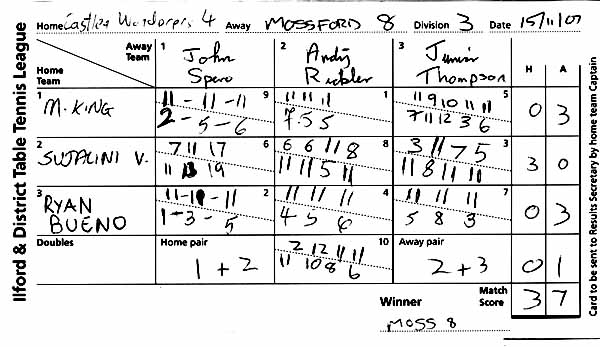 Ilford & District Table Tennis League
Home Castles Wardorers 4 Away MOSSFORD 8 Division 3 Date 15/11/07
Away Team
Home Team
1 John Spero
2 Andy Rickler
3 Junior Thompson
H A
1 M. KING
9 11 - 11 - 11
2 - 5 - 6
1 11 11 11
7 5 5
5 11 9 10 11 11
7 11 12 3 6
0 3
2 SUJALINI V.
6 7 11 17
11 13 19
8 6 6 11 8
11 11 5 11
3 3 11 7 5
11 8 11 11
3 0
3 RYAN BUENO
2 11 - 11 - 11
1 - 3 - 5
4 11 11 11
4 5 6
7 11 11 11
5 8 3
0 3
Doubles
Home pair
1 + 2
10 2 12 11 11
11 10 8 6
Away pair
2 + 3
0 1
Winner
MOSS 8
Match Score
3 7
Card to be sent to Results Secretary by home team Captain